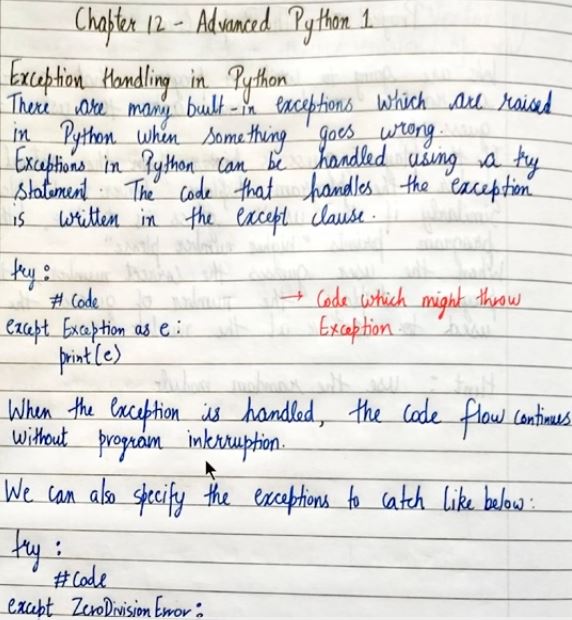 Chapter 12 - Advanced Python 1
Exception Handling in Python
There are many built-in exceptions which are raised
in Python when something goes wrong.
Exceptions in Python can be handled using a try
statement. The code that handles the exception
is written in the except clause.
try:
# Code → Code which might throw
except Exception as e: Exception
print(e)
When the exception is handled, the code flow continues
without program interruption.
We can also specify the exceptions to catch like below:
try:
#Code
except ZeroDivisionError: